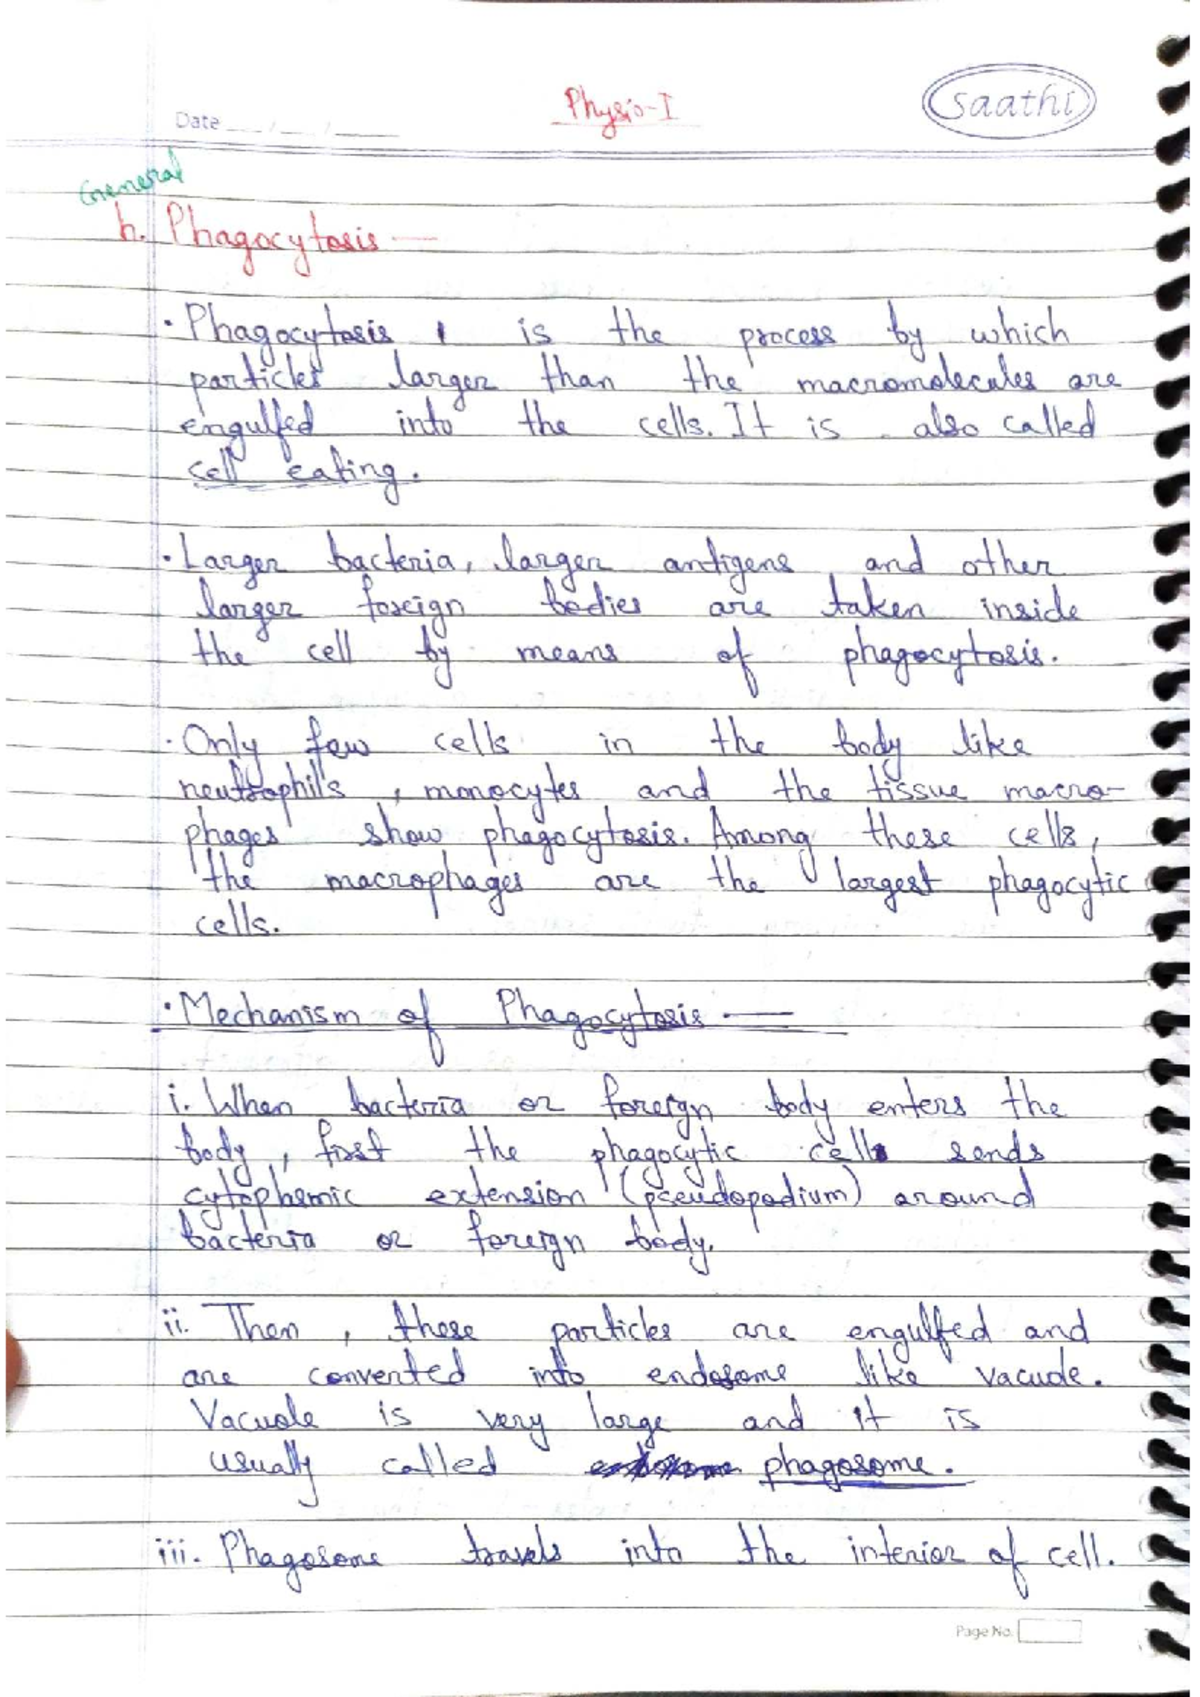 Physio-I
saathi
Date ___/___/_____
General
h. Phagocytosis —
• Phagocytosis is the process by which
particles larger than the macromolecules are
engulfed into the cells. It is also called
cell eating.
• Larger bacteria, larger antigens and other
larger foreign bodies are taken inside
the cell by means of phagocytosis.
• Only few cells in the body like
neutrophils, monocytes and the tissue macro-
phages show phagocytosis. Among these cells,
the macrophages are the largest phagocytic
cells.
• Mechanism of Phagocytosis —
i. When bacteria or foreign body enters the
body, first the phagocytic cell sends
cytoplasmic extension (pseudopodium) around
bacteria or foreign body.
ii. Then, these particles are engulfed and
are converted into endosome like vacuole.
Vacuole is very large and it is
usually called phagosome.
iii. Phagosome travels into the interior of cell.
Page No.